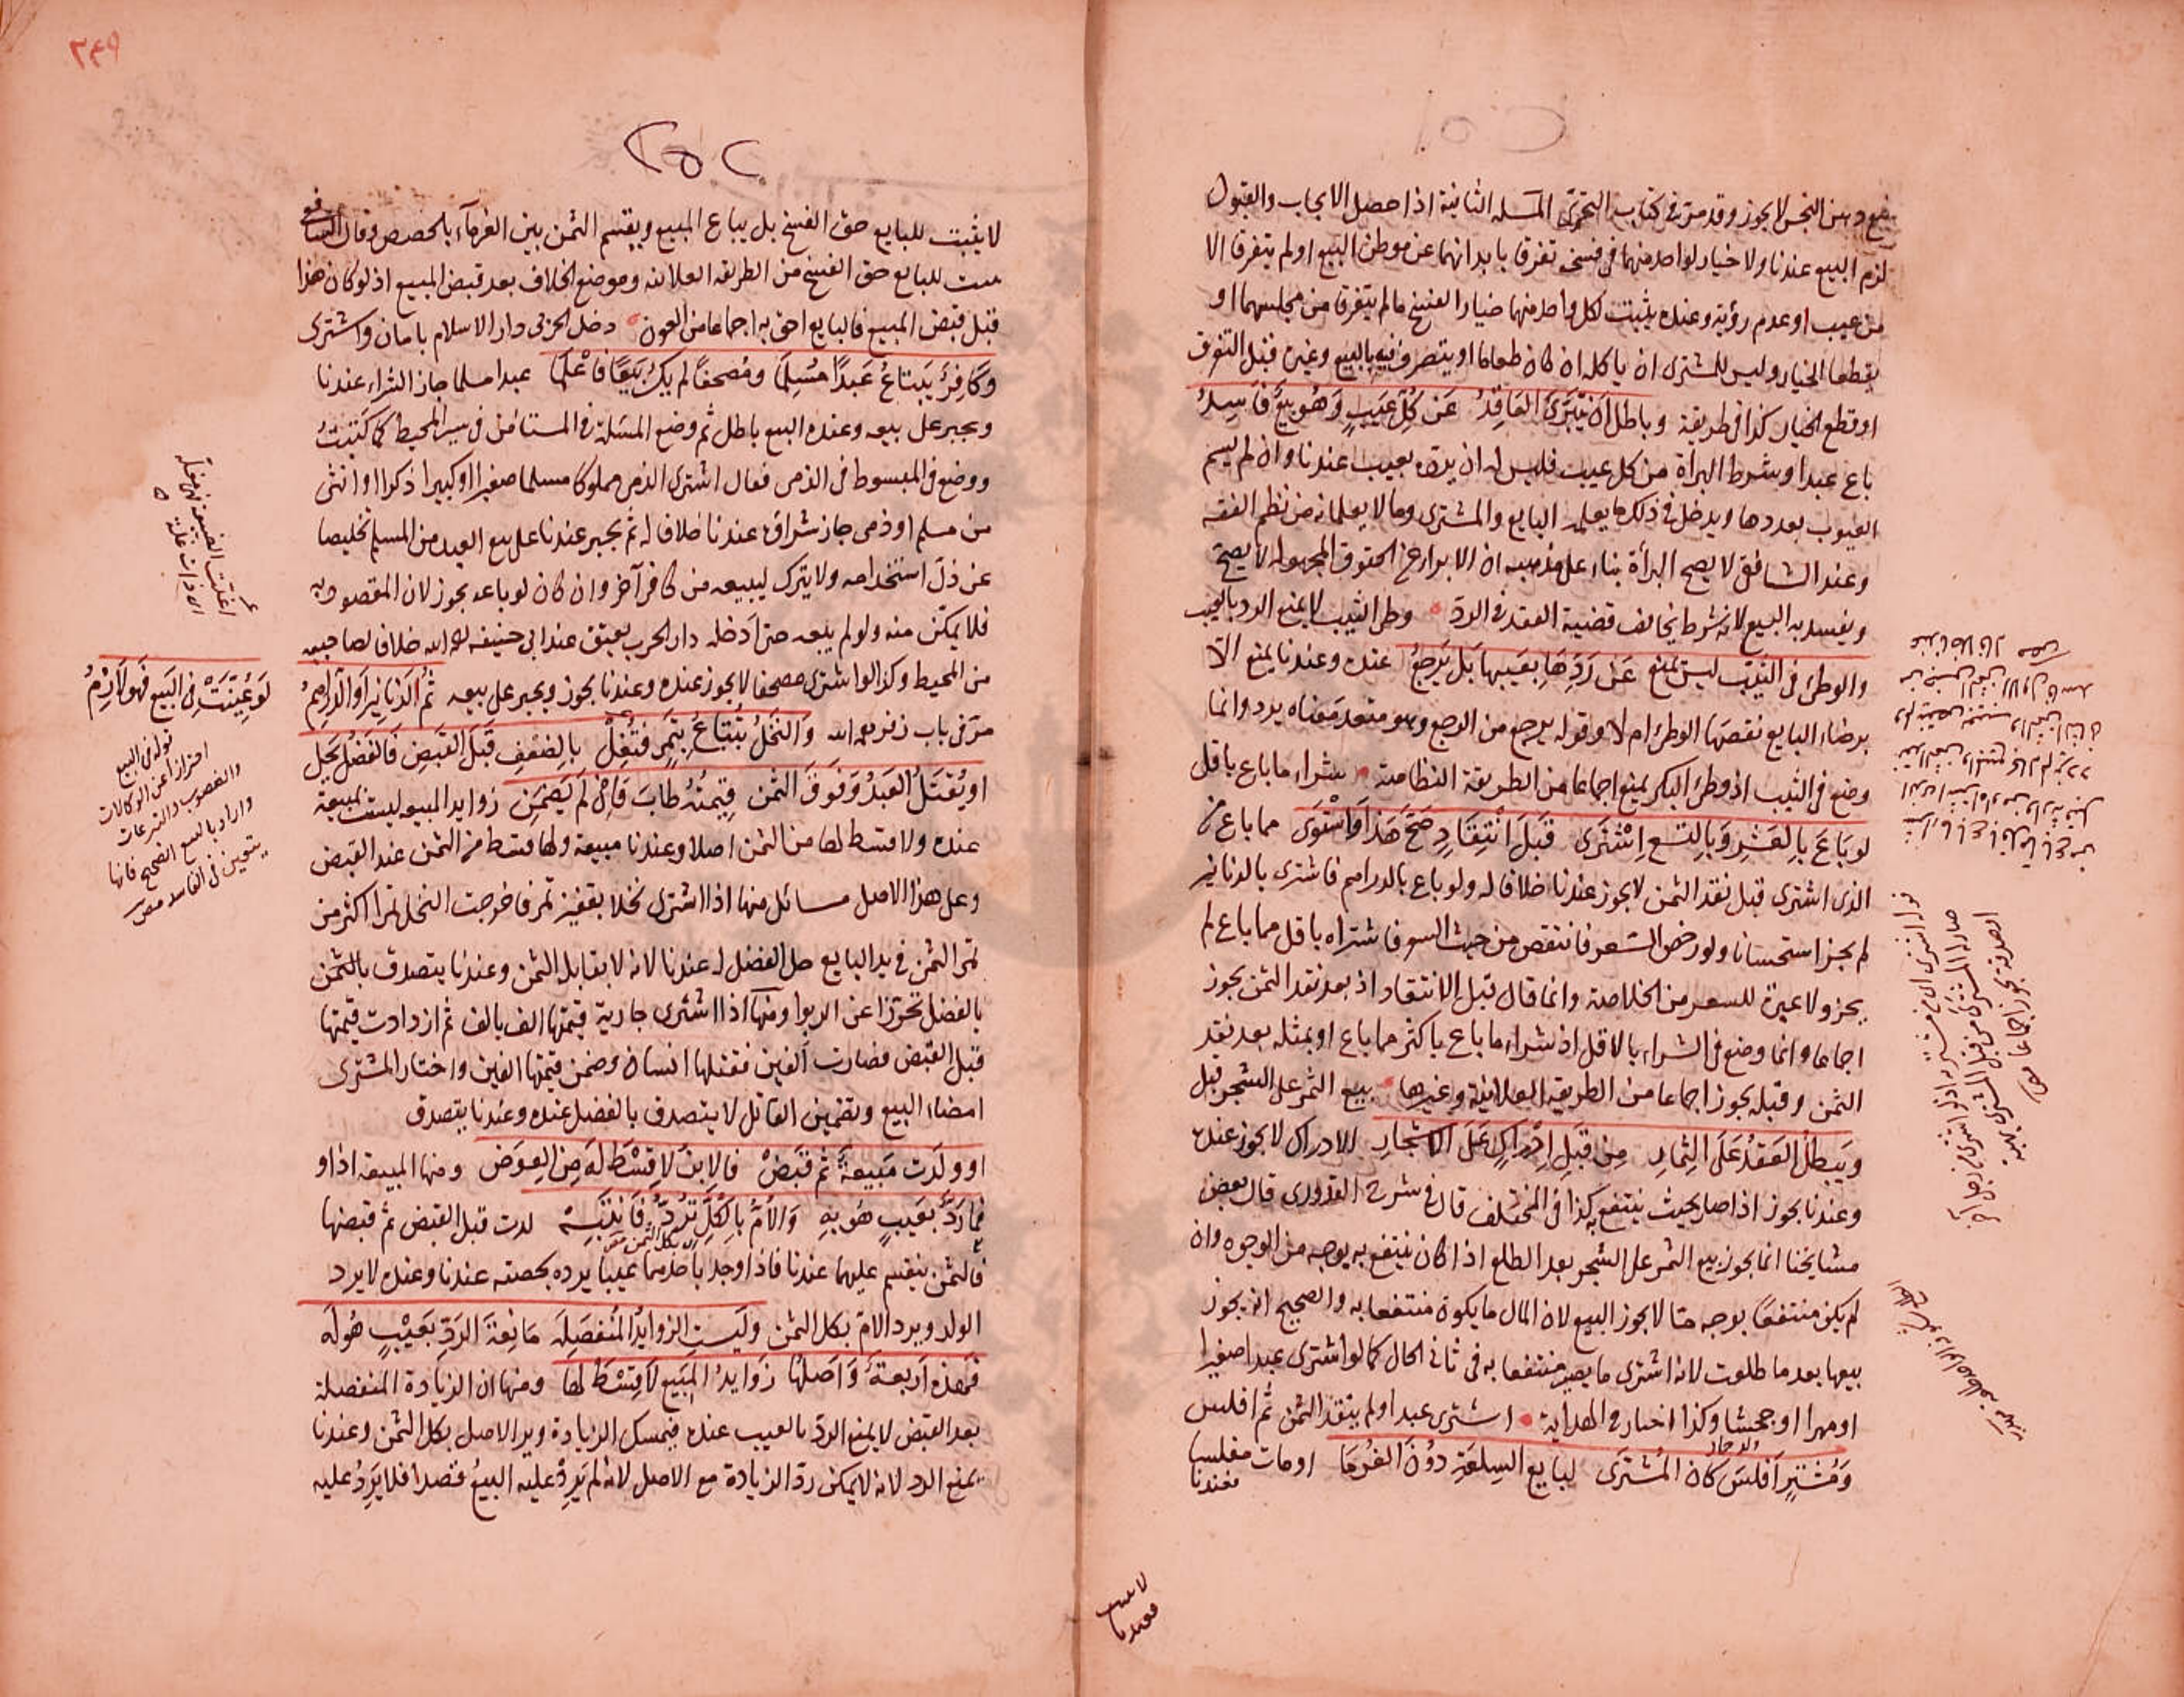 بيع دهن النجس لا يجوز وقد مرّ في كتاب التحري المسئلة الثانية اذا حصل الايجاب والقبول
لزم البيع عندنا ولا خيار لواحد منهما في فسخه تفرقا بابدانهما عن موطن البيع او لم يتفرقا الا
من عيب او عدم رؤية وعنده يثبت لكل واحد منهما خيار الفسخ ما لم يتفرقا من مجلسهما او
يقطعا الخيار وليس للمشترى ان ياكله ان كان طعاما او يتصرف فيه بالبيع وغيره قبل التفرق
او قطع الخيار كذا في طريقة وباطل ان يتبرى العاقد عن كل عيب وهو بيع فاسد
باع عبدا وشرط البراة من كل عيب فليس له ان يرده بعيب عندنا وان لم يسم
العيوب بعددها ويدخل في ذلك ما يعلمه البايع والمشترى وما لا يعلمانه من نظم الفقه
وعند الشافعي لا يصح البرأة بناء على مذهبه ان الابراء عن الحقوق المجهولة لا يصح
ويفسد به البيع لانه شرط يخالف قضية العقد في الرد وطى الثيب لا يمنع الرد بالعيب
والوطئ في الثيب ليس يمنع عن ردها بعيبها بل يرجع عنده وعندنا يمنع الا
برضاء البايع نقصها الوطئ ام لا وقوله يرجع من الرجع وهو متعد معناه يرد وانما
وضع في الثيب اذ وطئ البكر يمنع اجماعا من الطريقة النظامية شراء ما باع باقل
لو باع بالعشر وبالتسع اشترى قبل انتقاد صح هذا واستوى مما باع من
الذي اشترى قبل نقد الثمن لا يجوز عندنا خلافا له ولو باع بالدراهم فاشترى بالدنانير
لم يجز استحسانا ولو رخص السعر فانتقص من حيث السوق فاشتراه باقل مما باع لم
يجز ولا عبرة للسعر من الخلاصة وانما قال قبل الانتقاد اذ بعد نقد الثمن يجوز
اجماعا وانما وضع في الشراء بالاقل اذ شراء ما باع باكثر مما باع او بمثله بعد نقد
الثمن وقبله يجوز اجماعا من الطريقة العلائية وغيرها بيع الثمر على الشجر قبل
ويبطل العقد على الثمار من قبل ادراك على الاشجار الادراك لا يجوز عنده
وعندنا يجوز اذا صار بحيث ينتفع به كذا في المختلف قال في شرح القدورى قال بعض
مشايخنا انما يجوز بيع الثمر على الشجر بعد الطلع اذا كان ينتفع به بوجه من الوجوه وان
لم يكن منتفعا بوجه ما لا يجوز البيع لان المال ما يكون منتفعا به والصحيح انه يجوز
بيعها بعد ما طلعت لانه اشترى ما يصير منتفعا به في ثاني الحال كما لو اشترى عبدا صغيرا
او مهرا او جحشا وكذا اختار في الهداية اشترى عبدا ولم ينقد الثمن ثم افلس
ومشتر افلس كان المشترى لبايع السلعة دون الغرما او مات مفلسا
فعندنا
لا يثبت للبايع حق الفسخ بل يباع المبيع ويقسم الثمن بين الغرمآء بالحصص وقال الشافعي
يثبت للبايع حق الفسخ من الطريقة العلائية وموضع الخلاف بعد قبض المبيع اذ لو كان هذا
قبل قبض المبيع فالبايع احق به اجماعا من العون دخل الحربي دار الاسلام بامان واشترى
وكافر يبتاع عبدا مسلما ومصحفا لم يك بيعا فاعلما عبدا مسلما جاز الشراء عندنا
ويجبر على بيعه وعنده البيع باطل ثم وضع المسئلة في المستامن في سير المحيط كما كتبت
ووضع في المبسوط في الذمى فقال اشترى الذمى مملوكا مسلما صغيرا او كبيرا ذكرا او انثى
من مسلم او ذمى جاز شراؤه عندنا خلافا له ثم يجبر عندنا على بيع العبد من المسلم تخليصا
عن ذل استخدامه ولا يترك ليبيعه من كافر آخر وان كان لو باعه يجوز لان المقصود به
فلا يمكن منه ولو لم يبعه حتى ادخله دار الحرب يعتق عند ابي حنيفة رحمه الله خلافا لصاحبيه
من المحيط وكذا لو اشترى مصحفا لا يجوز عنده وعندنا يجوز ويجبر على بيعه ثم الدنانير او الدراهم
لو عينت في البيع فهو لازم
مرّ في باب زفر رحمه الله والنخل تبتاع بتمر فتغل بالضعف قبل القبض فالفضل يحل
او يقتل العبد وفوق الثمن قيمته طاب فان لم يضمن زوايد المبيع ليست بمبيعة
عنده ولا قسط لها من الثمن اصلا وعندنا مبيعة ولها قسط من الثمن عند القبض
وعلى هذا الاصل مسائل منها اذا اشترى نخلا بقفيز تمر فاخرجت النخل تمرا اكثر من
تمر الثمن في يد البايع حل الفضل له عندنا لانه لا يقابل الثمن وعندنا يتصدق بالثمن
بالفضل تحرزا عن الربوا ومنها اذا اشترى جارية قيمتها الف بالف ثم ازدادت قيمتها
قبل القبض فصارت ألفين فقتلها انسان وضمن قيمتها الفين واختار المشترى
امضاء البيع وتضمين القاتل لا يتصدق بالفضل عنده وعندنا يتصدق
او ولدت مبيعة ثم قبض فالابن لا قسط له من العوض ومنها المبيعة اذا و
فما رد بعيب هو به والام بالكل ترد فانتبه لدت قبل القبض ثم قبضها
فالثمن ينقسم عليهما عندنا فاذا وجد باحدهما عيبا يرده بحصته عندنا وعنده لا يرد
الولد ويرد الام بكل الثمن وليست الزوايد المنفصله مانعة الرد بعيب هو له
فهذه اربعة واصلها زوايد المبيع لا قسط لها ومنها ان الزيادة المنفصلة
بعد القبض لا يمنع الرد بالعيب عنده فيمسك الزيادة ويرد الاصل بكل الثمن وعندنا
يمنع الرد لانه لا يمكن رد الزيادة مع الاصل لانه لم يرد عليه البيع قصدا فلا يرد عليه
قوله في البيع
احترازا عن الوكالات
والغصوب والتبرعات
واراد بالبيع الصحيح فانها
يتعين في الفاسد مص